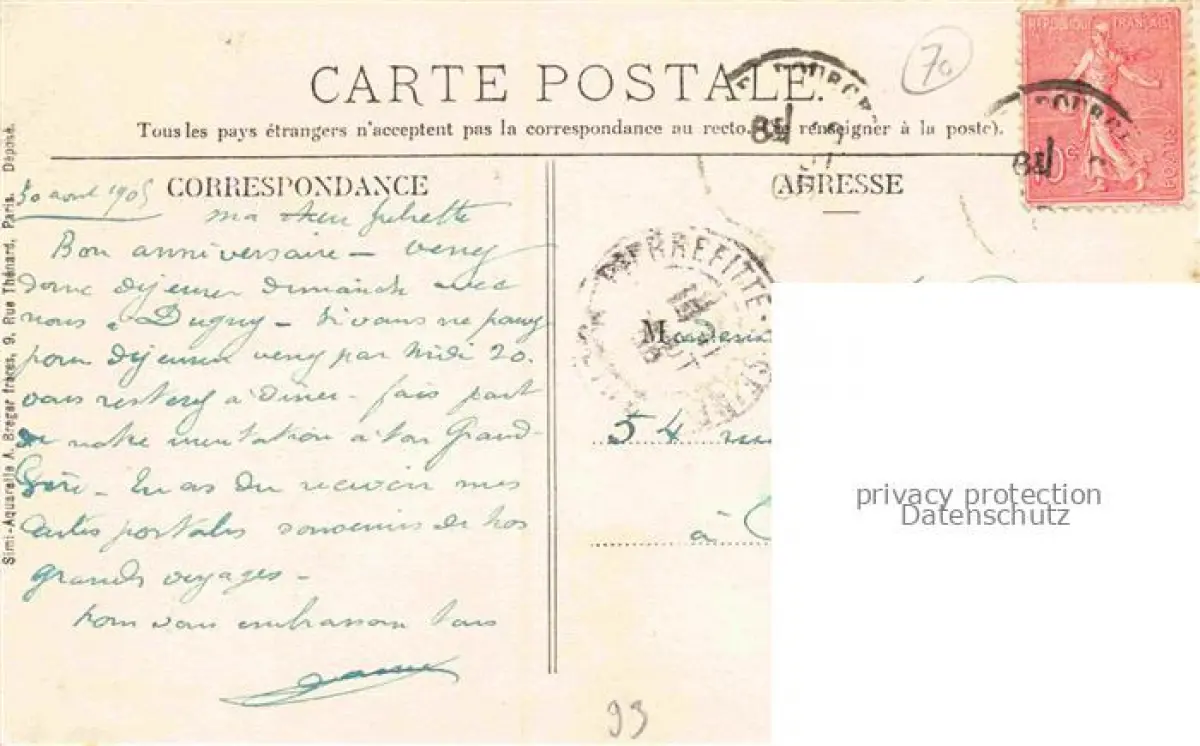 CARTE POSTALE.
Tous les pays étrangers n'acceptent pas la correspondance au recto. (Se renseigner à la poste).
REPUBLIQUE FRANÇAISE
10 c
POSTES
70
CORRESPONDANCE
ADRESSE
30 aout 1905
ma chère Juliette
Bon anniversaire — venez
donc déjeuner dimanche avec
nous à Dugny — Si vous ne pouvez
pour déjeuner venez par midi 20.
vous resterez à dîner — fais part
de notre invitation à ton Grand-
Père — Tu as du recevoir mes
cartes postales souvenirs de nos
grands voyages —
nous vous embrassons tous
PIERREFITTE
SEINE
M
54
à
Simi-Aquarelle A. Breger frères, 9, Rue Thénard, Paris. Déposé.
93
privacy protection
Datenschutz